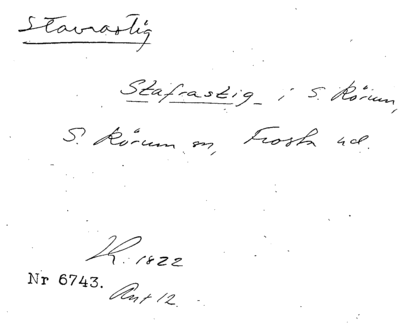 Stavrastig
Stafrastig i S. Rörum,
S. Rörum sn, Frosta hd.
R. 1822
Nr 6743.
Ant 12.